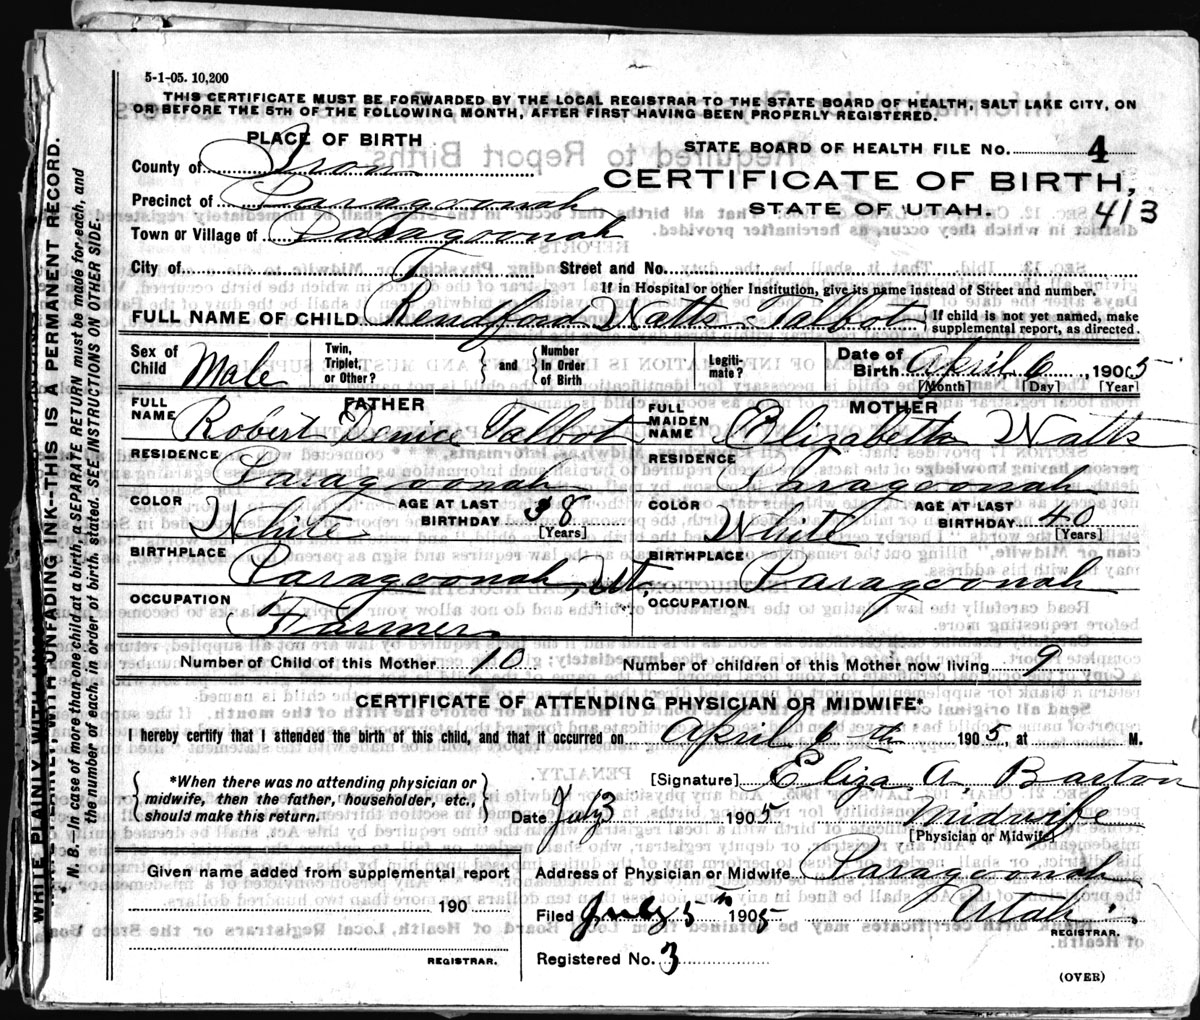 5-1-05. 10,200
THIS CERTIFICATE MUST BE FORWARDED BY THE LOCAL REGISTRAR TO THE STATE BOARD OF HEALTH, SALT LAKE CITY, ON
OR BEFORE THE 5TH OF THE FOLLOWING MONTH, AFTER FIRST HAVING BEEN PROPERLY REGISTERED.
PLACE OF BIRTH
County of Iron
Precinct of Paragoonah
Town or Village of Paragoonah
STATE BOARD OF HEALTH FILE NO. 4
CERTIFICATE OF BIRTH,
STATE OF UTAH.
413
City of Street and No.
If in Hospital or other Institution, give its name instead of Street and number.
FULL NAME OF CHILD Rendford Watts Talbot { If child is not yet named, make supplemental report, as directed.
Sex of Child Male
Twin, Triplet, or Other?
} and { Number In Order of Birth
Legitimate?
Date of Birth April 6, 1905
[Month] [Day] [Year]
FATHER
FULL NAME Robert Talbot
RESIDENCE Paragoonah
COLOR White AGE AT LAST BIRTHDAY 38 [Years]
BIRTHPLACE Paragoonah, Ut.
OCCUPATION Farmer
MOTHER
FULL MAIDEN NAME Elizabeth Watts
RESIDENCE Paragoonah
COLOR White AGE AT LAST BIRTHDAY 40 [Years]
BIRTHPLACE Paragoonah
OCCUPATION
Number of Child of this Mother 10 Number of children of this Mother now living 9
CERTIFICATE OF ATTENDING PHYSICIAN OR MIDWIFE*
I hereby certify that I attended the birth of this child, and that it occurred on April 6th 1905, at M.
{ *When there was no attending physician or
midwife, then the father, householder, etc.,
should make this return. }
[Signature] Eliza A Barton
Date July 3 1905 Midwife
[Physician or Midwife]
Given name added from supplemental report
190
REGISTRAR.
Address of Physician or Midwife Paragoonah
Filed July 5th 1905 Utah
REGISTRAR.
Registered No. 3
(OVER)
WRITE PLAINLY WITH UNFADING INK--THIS IS A PERMANENT RECORD.
* N. B.--In case of more than one child at a birth, SEPARATE RETURN must be made for each, and
the number of each, in order of birth, stated. SEE INSTRUCTIONS ON OTHER SIDE.